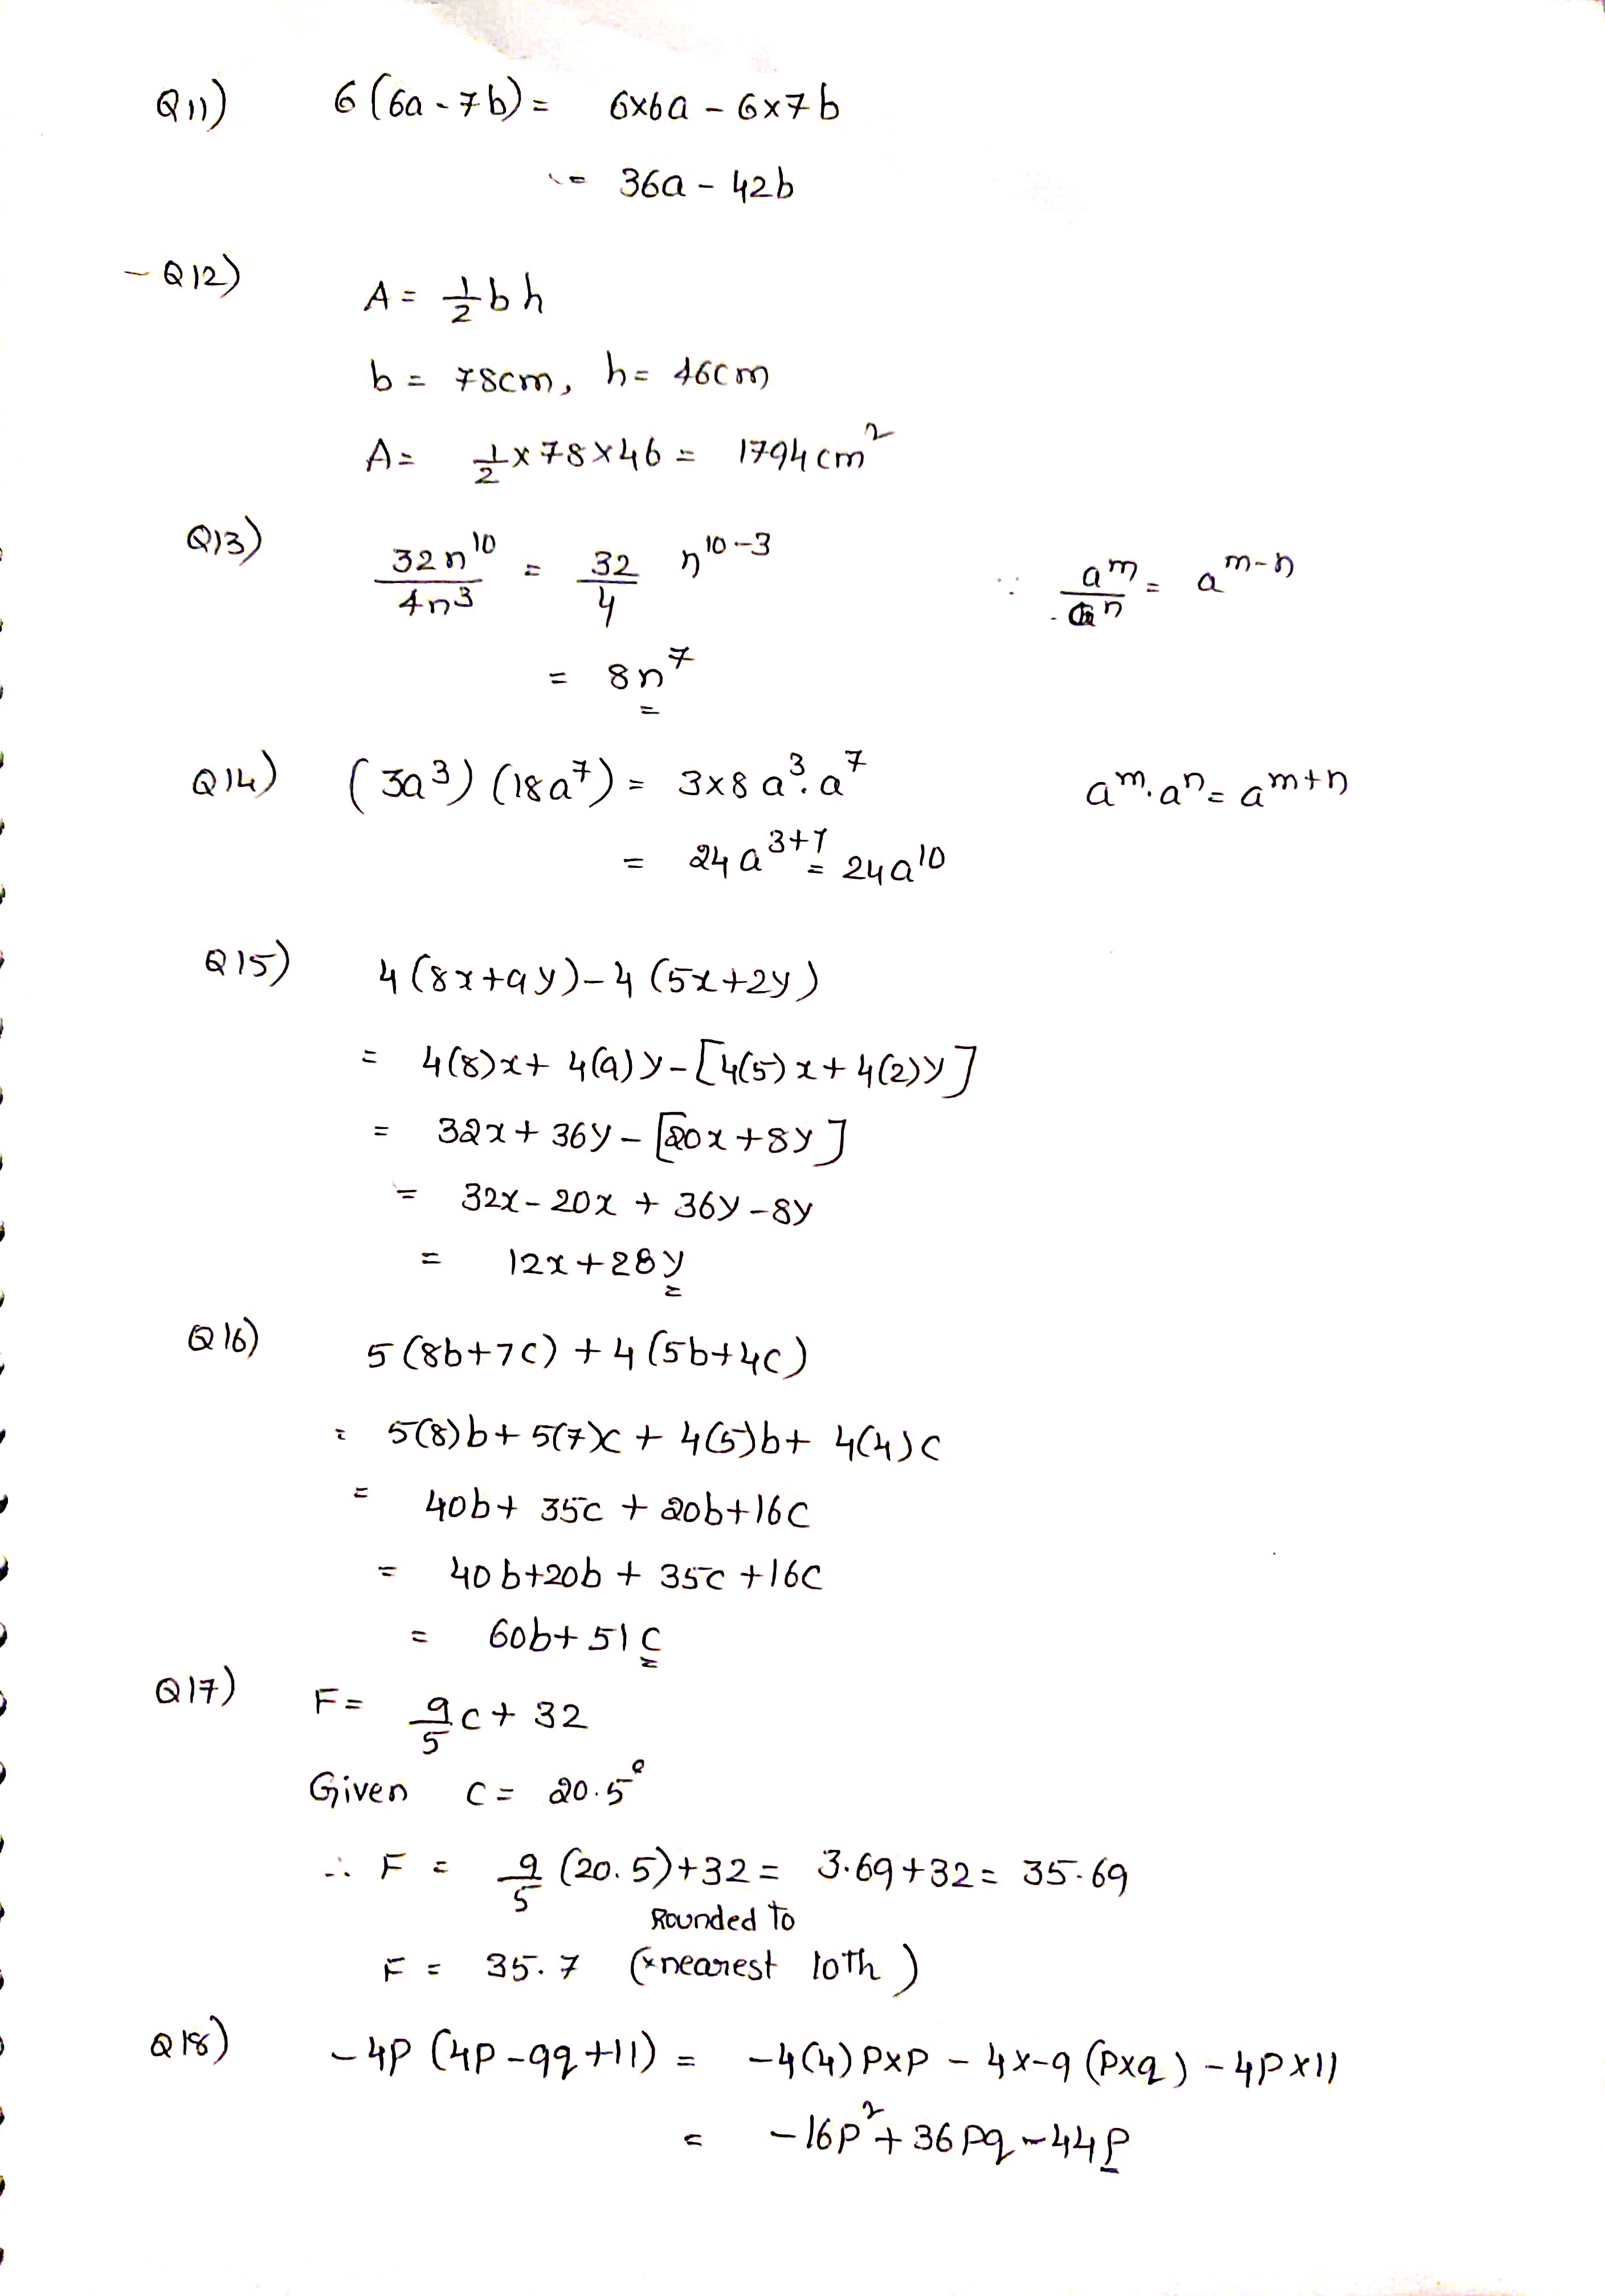 Q11) 6(6a-7b) = 6×6a - 6×7b
= 36a - 42b
- Q12)
A = 1/2 bh
b = 78cm, h = 46cm
A = 1/2 × 78 × 46 = 1794 cm²
Q13) 32n¹⁰/4n³ = 32/4 n¹⁰⁻³ ∵ aᵐ/aⁿ = aᵐ⁻ⁿ
= 8n⁷
Q14) (3a³)(18a⁷) = 3×8 a³·a⁷ aᵐ·aⁿ = aᵐ⁺ⁿ
= 24a³⁺⁷ = 24a¹⁰
Q15) 4(8x+9y)-4(5x+2y)
= 4(8)x + 4(9)y - [4(5)x + 4(2)y]
= 32x + 36y - [20x + 8y]
= 32x - 20x + 36y - 8y
= 12x + 28y
Q16) 5(8b+7c) + 4(5b+4c)
= 5(8)b + 5(7)c + 4(5)b + 4(4)c
= 40b + 35c + 20b + 16c
= 40b+20b + 35c + 16c
= 60b + 51c
Q17) F = 9/5 c + 32
Given c = 20.5°
∴ F = 9/5 (20.5)+32 = 3.69+32 = 35.69
Rounded to
F = 35.7 (nearest 10th)
Q18) -4p (4p-9q+11) = -4(4) p×p - 4×-9 (p×q) - 4p×11
= -16p² + 36pq - 44p